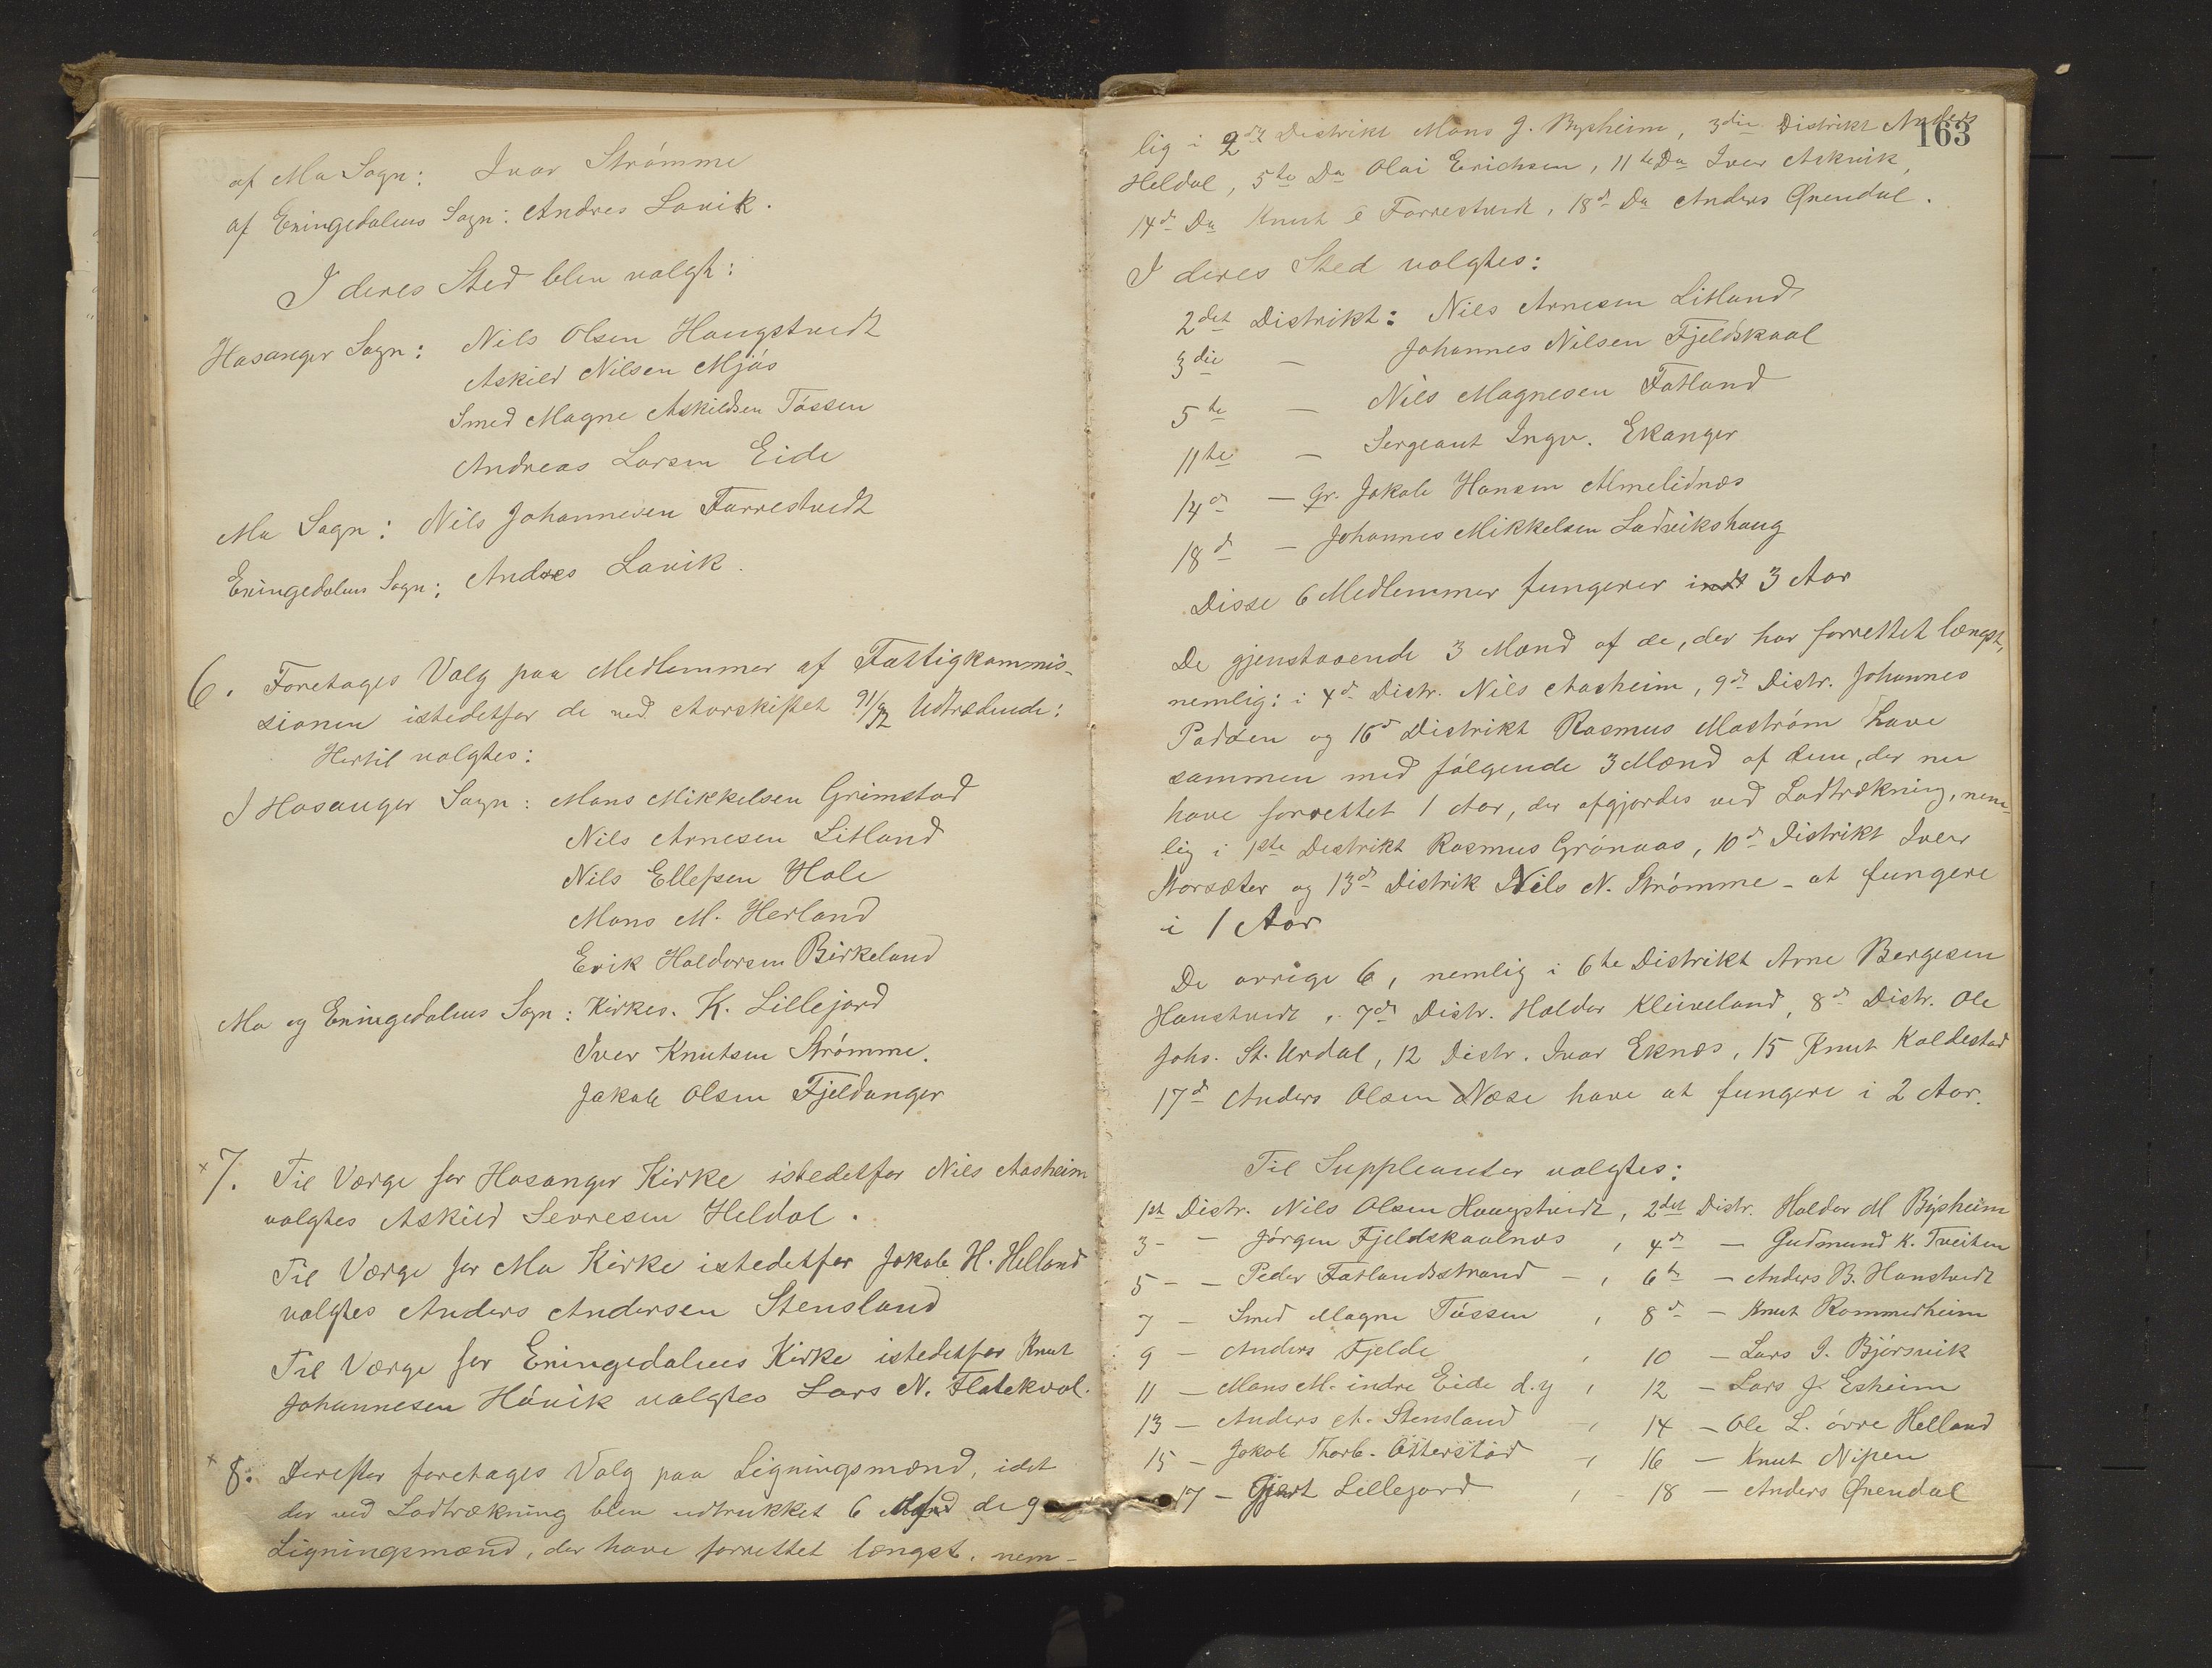 af Mo Sogn: Ivar Strømme
af Eningedalens Sogn: Andres Lavik.
I deres Sted blev valgt:
Hosanger Sogn: Nils Olsen Hougstvedt
Askild Nilsen Mjøs
Smed Magne Askildsen Tøssen
Andreas Larsen Eide
Mo Sogn: Nils Johannesen Farrestvedt
Eningedalens Sogn: Andres Lavik.
6. Foretages Valg paa Medlemmer af Fattigkommis-
sionen istedetfor de ved Aarskiftet 91/92 Udtrædende:
Hertil valgtes:
I Hosanger Sogn: Mons Mikkelsen Grimstad
Nils Arnesen Litland
Nils Ellefsen Hole
Mons M. Herland
Erik Haldorsen Birkeland
Mo og Eningedalens Sogn: Kirkes. K. Lillejord
Iver Knutsen Strømme.
Jakob Olsen Fjeldanger
7. Til Værge for Hosanger Kirke istedetfor Nils Aasheim
valgtes Askild Sevresen Heldal.
Til Værge for Mo Kirke istedetfor Jakob H. Helland
valgtes Anders Andersen Stensland
Til Værge for Eningedalens Kirke istedetfor Knut
Johannesen Høvik valgtes Lars N. Flatekval.
8. Derefter foretages Valg paa Ligningsmænd, idet
der ved Lodtrækning blev udtrukket 6 de 9
Ligningsmænd, der have forrettet længst. nem-
163
lig i 2det Distrikt Mons J. Bysheim, 3die Distrikt Anders
Heldal, 5te Do Olai Erichsen, 11te Do Iver Askvik,
14d Do Knut Farrestvedt, 18d Do Anders Øvendal.
I deres Sted valgtes:
2det Distrikt: Nils Arnesen Litland
3die — Johannes Nilsen Fjeldskaal
5te — Nils Magnesen Fatland
11te — Sergeant Ingv. Ekanger
14d — Gr. Jakob Hansen Almelidnæs
18d — Johannes Mikkelsen Ladvikshaug
Disse 6 Medlemmer fungerer i 3 Aar
De gjenstaaende 3 Mænd af de, der har forrettet længst,
nemlig: i 4d Distr. Nils Aasheim, 9d Distr. Johannes
Padøen og 16d Distrikt Rasmus Mostrøm have
sammen med følgende 3 Mænd af dem, der nu
have forrettet 1 Aar, der afgjordes ved Lodtrækning, nem-
lig i 1ste Distrikt Rasmus Grønaas, 10d Distrikt Iver
Storsæter og 13d Distrik Nils N. Strømme - at fungere
i 1 Aar
De øvrige 6, nemlig i 6te Distrikt Arne Bergesen
Hanstvedt, 7d Distr. Haldor Kleiveland, 8d Distr. Ole
Johs. St. Urdal, 12 Distr. Ivar Eknæs, 15 Knut Koldestad
17d Anders Olsen Næse have at fungere i 2 Aar.
Til Suppleanter valgtes:
1st Distr. Nils Olsen Hougstvedt, 2det Distr. Haldor M Bysheim
3 - - Jørgen Fjeldskaalnæs, 4d — Gudmund K. Tveiten
5 - - Peder Fatlandsstrand -, 6te — Anders B. Hanstvedt
7 — Smed Magne Tøssen, 8d — Knut Rommerheim
9 — Anders Fjelde, 10 — Lars I. Bjørsvik
11 — Mons M. indre Eide d.y, 12 — Lars J. Esheim
13 — Anders A. Stensland -, 14 — Ole L. øvre Helland
15 — Jakob Thorb. Otterstad -, 16 — Knut Nipen
17 — Gjert Lillejord, 18 — Anders Øvendal